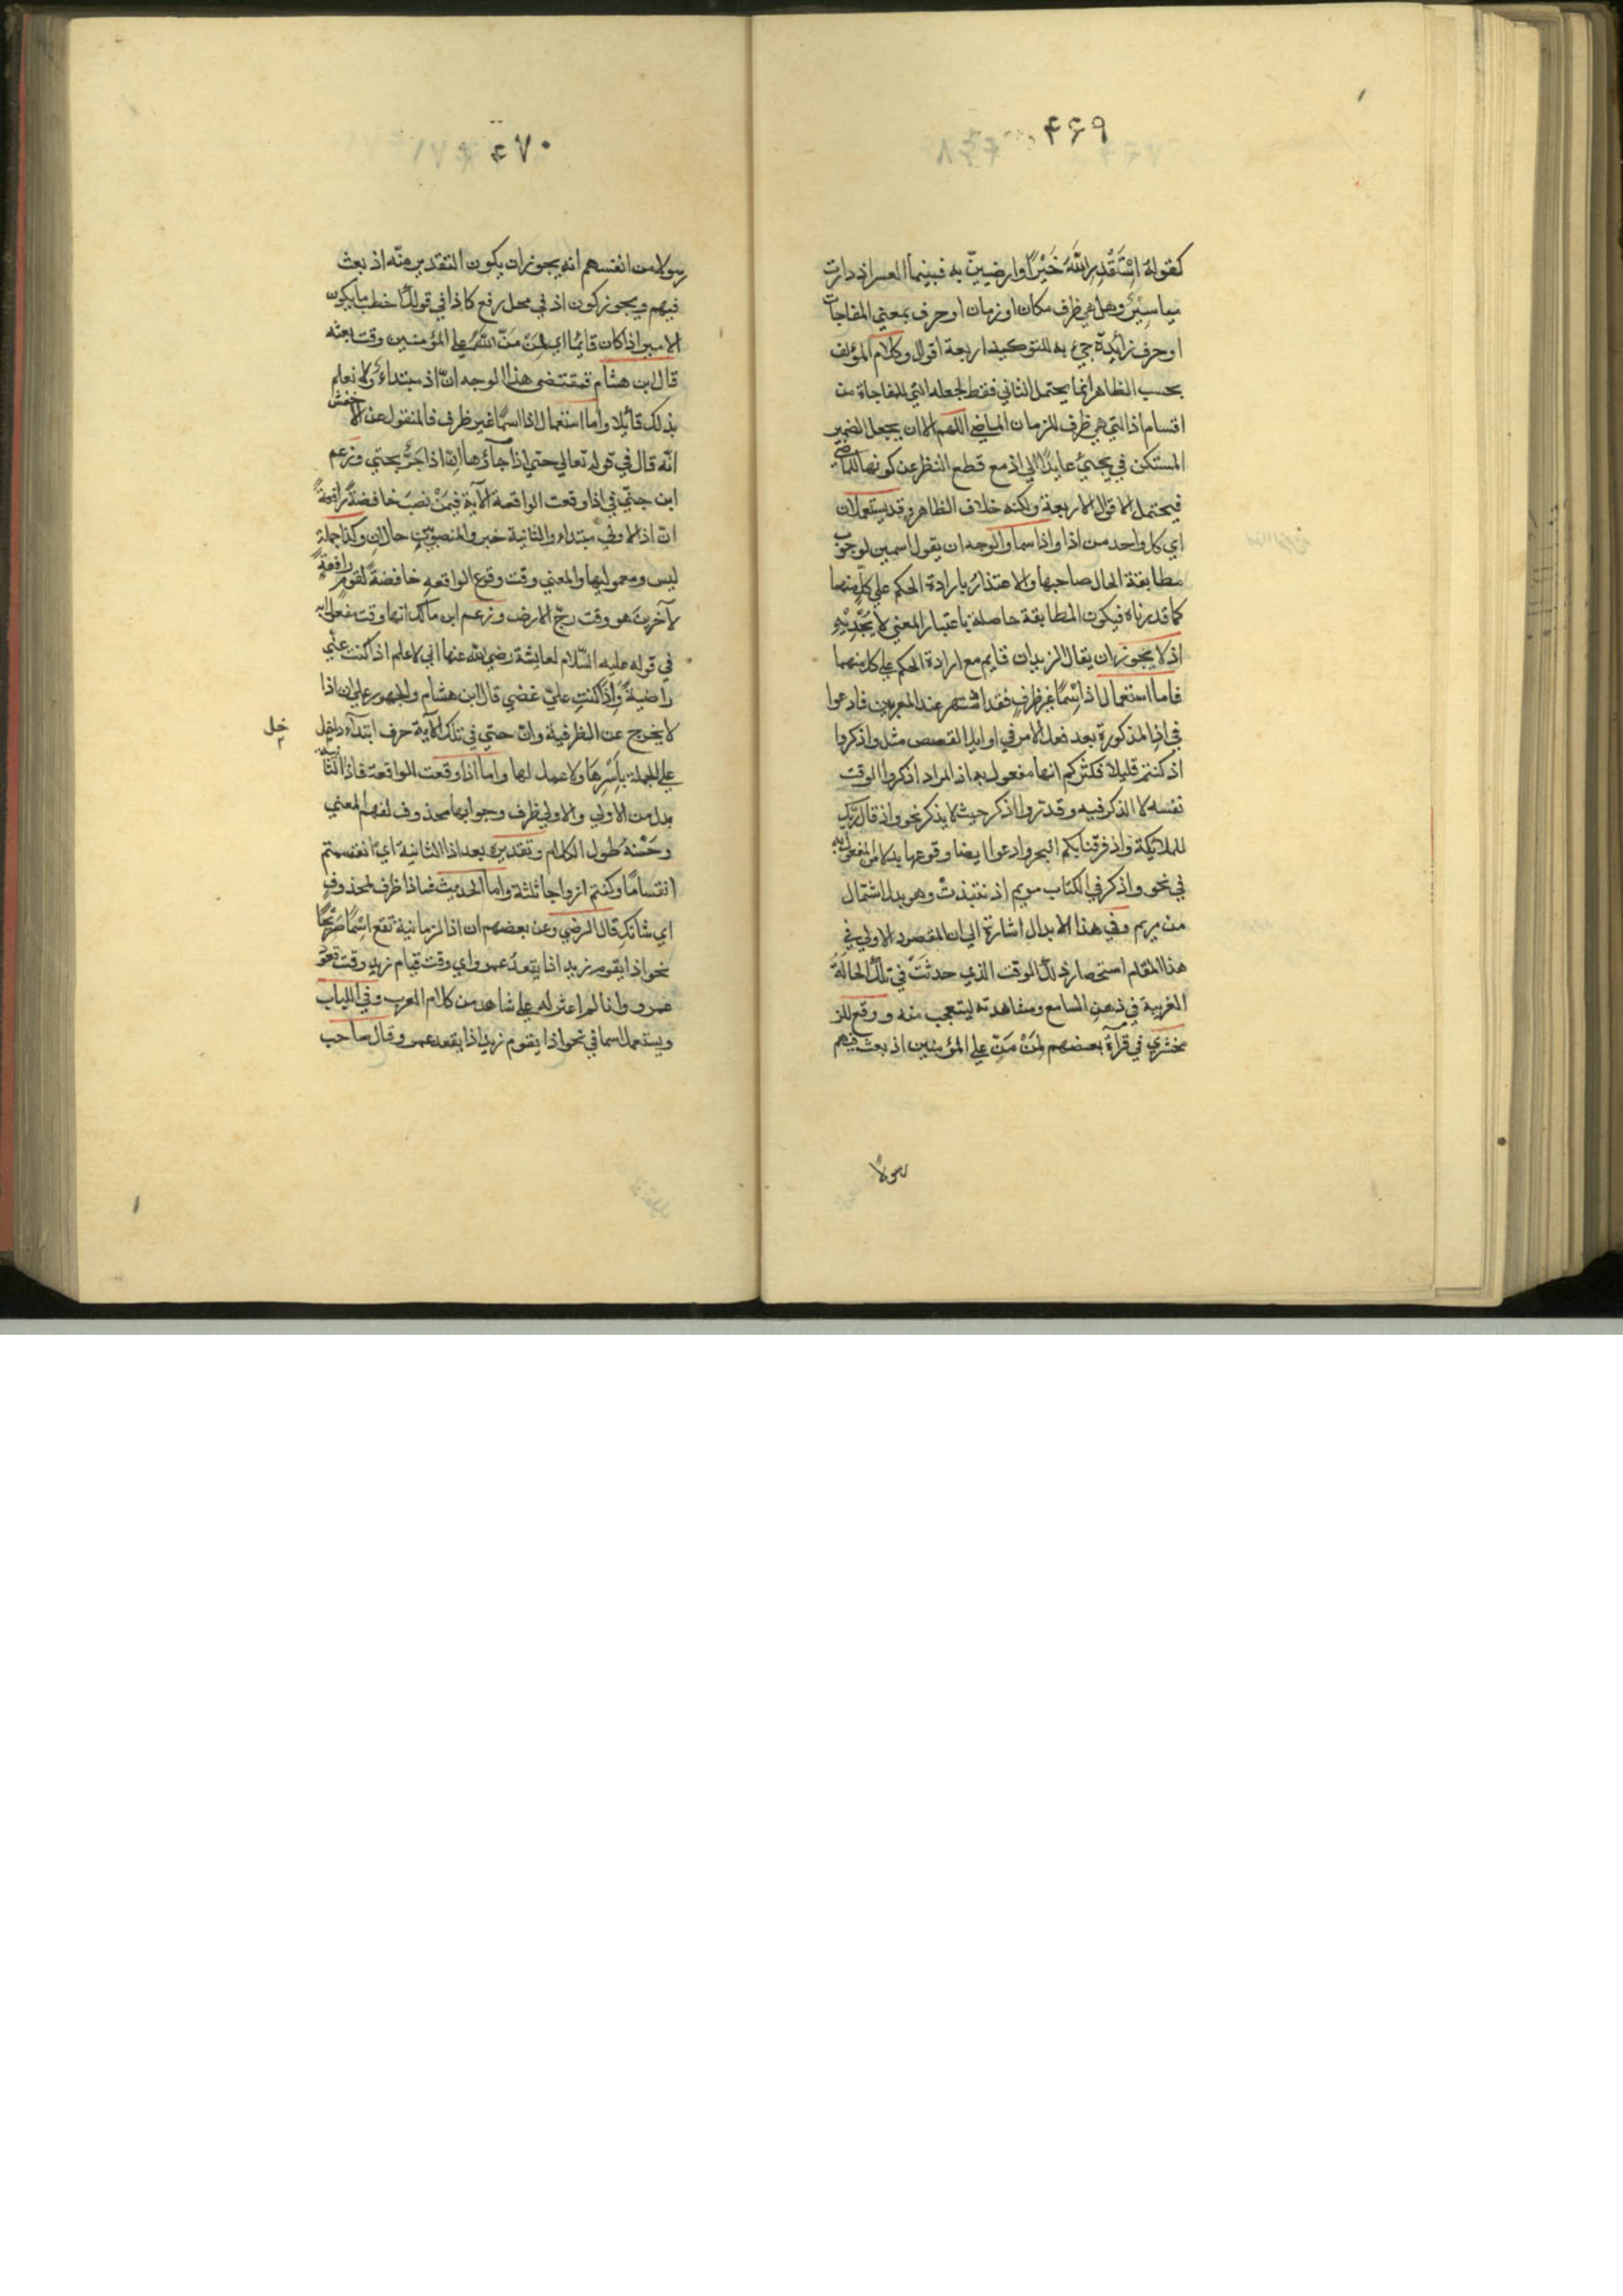 ۴۶۹
كقوله اِسْتَقْدِرِ اللّٰهَ خَيْرًا وارضَيَنَّ به فبينما العسر اذ دارت
مياسيرُ وهل هي ظرف مكان او زمان او حرف بمعني المفاجات
او حرف زائدة جيء به للتوكيد اربعة اقوال وكلام المؤلف
بحسب الظاهر انما يحتمل الثاني فقط لجعله التي للمفاجاة من
اقسام اذ التي هي ظرف للزمان الماضي اللهم الا ان يجعل الضمير
المستكن في يجيئ عايدًا الي اذ مع قطع النظر عن كونها للماضي
فيحتمل الاقوال الاربعة ولكنه خلاف الظاهر وقد يستعملان
اي كل واحد من اذا واذ اسما والوجه ان يقول اسمين لوجوب
مطابقة الحال صاحبها والاعتذار بارادة الحكم علي كلٍ منهما
كما قدرناه فيكون المطابقة حاصلة باعتبار المعني لا يُجْدِيْهِ
اذ لا يجوز ان يقال الزيدان قايم مع ارادة الحكم علي كل منهما
فاما استعمال اذ اسْمًا غير ظرفٍ فقد اشتهر عند المعربين فادعوا
في اذ المذكورة بعد فعل الامر في اوايل القصص مثل واذكروا
اذ كنتم قليلا فكثركم انها مفعول به اذ المراد اذكروا الوقت
نفسه لا الذكر فيه وقدروا اذكر حيث لا يذكر نحو واذ قال ربك
للملائكة واذ فرقنا بكم البحر وادعوا ايضا وقوعها بدلا من المفعول به
في نحو واذكر في الكتاب مريم اذ نتبذت وهو بدل اشتمال
من مريم وفي هذا الابدال اشارة الي ان المقصود الاولي في
هذا المقام استحضار ذلك الوقت الذي حدثت في تلك الحالة
الغريبة في ذهن السامع ومشاهدته ليتعجب منه ووقع للز
مخشري في قرآة بعضهم لَمَنْ مَنِّ علي المؤمنين اذ بعث فيهم
رسولًا
۴۷۰
رسولا من انفسهم انه يجوز ان يكون التقدير منّه اذ بعث
فيهم ويجوز كون اذ في محل رفع كاذا في قولك اخطب ما يكون
الامير اذا كان قايمًا اي لمن منّ اللّٰه علي المؤمنين وقت بعثه
قال ابن هشام فمقتضي هذا الوجه انّ اذ مبتداء ولا نعلم
بذلك قائلا واما استعمال اذا اسمًا غير ظرف فالمنقول عن الاخفش
انّه قال في قوله تعالي حتي اذا جآؤها انّ اذا جَرٌّ بحتي وزعم
ابن جنّي في اذا وقعت الواقعة الآية فيمَنْ نصبَ خافضةً رافعةً
انّ اذا الاولي مبتداء والثانية خبر والمنصوبَيْنِ حالان وكذا جملة
ليس ومعموليها والمعني وقت وقوع الواقعه خافضةً لقومٍ رافعةٍ
لآخرين هو وقت رجّ الارض وزعم ابن مالك انها وقت مفعولا به
في قوله عليه السّلام لعايشة رضي اللّٰه عنها اني لاعلم اذا كنت عنّي
راضيةً واذا كنتِ عليّ غضبي قال ابن هشام والجمهور علي ان اذا
لا يخرج عن الظرفية وان حتي في تلك الآية حرف ابتدآء داخل
خل
علي الجملة بأَسْرِهَا ولا عمل لها واما اذا وقعت الواقعة فاذا الثانية
بدل من الاولي والاولي ظرف وجوابها محذوف لفهم المعني
وحَسَّنهُ طول الكلام وتقديره بعد اذا الثانية اي انقسمتم
انقسامًا وكنتم ازواجا ثلثة واما الحديث فاذا ظرف لمحذوف
اي شانكِ قال الرضي وعن بعضهم ان اذا الزمانية تقع اسْمًا صَرْيحًا
نحو اذا يقوم زيد اذا يقعدُ عمرو اي وقت قيام زيدٍ وقت قعود
عمرو وانا لم اعثر له علي شاهد من كلام العرب وفي اللباب
ويستعمل اسما في نحو اذا يقوم زيد اذا يقعد عمرو وقال صاحب